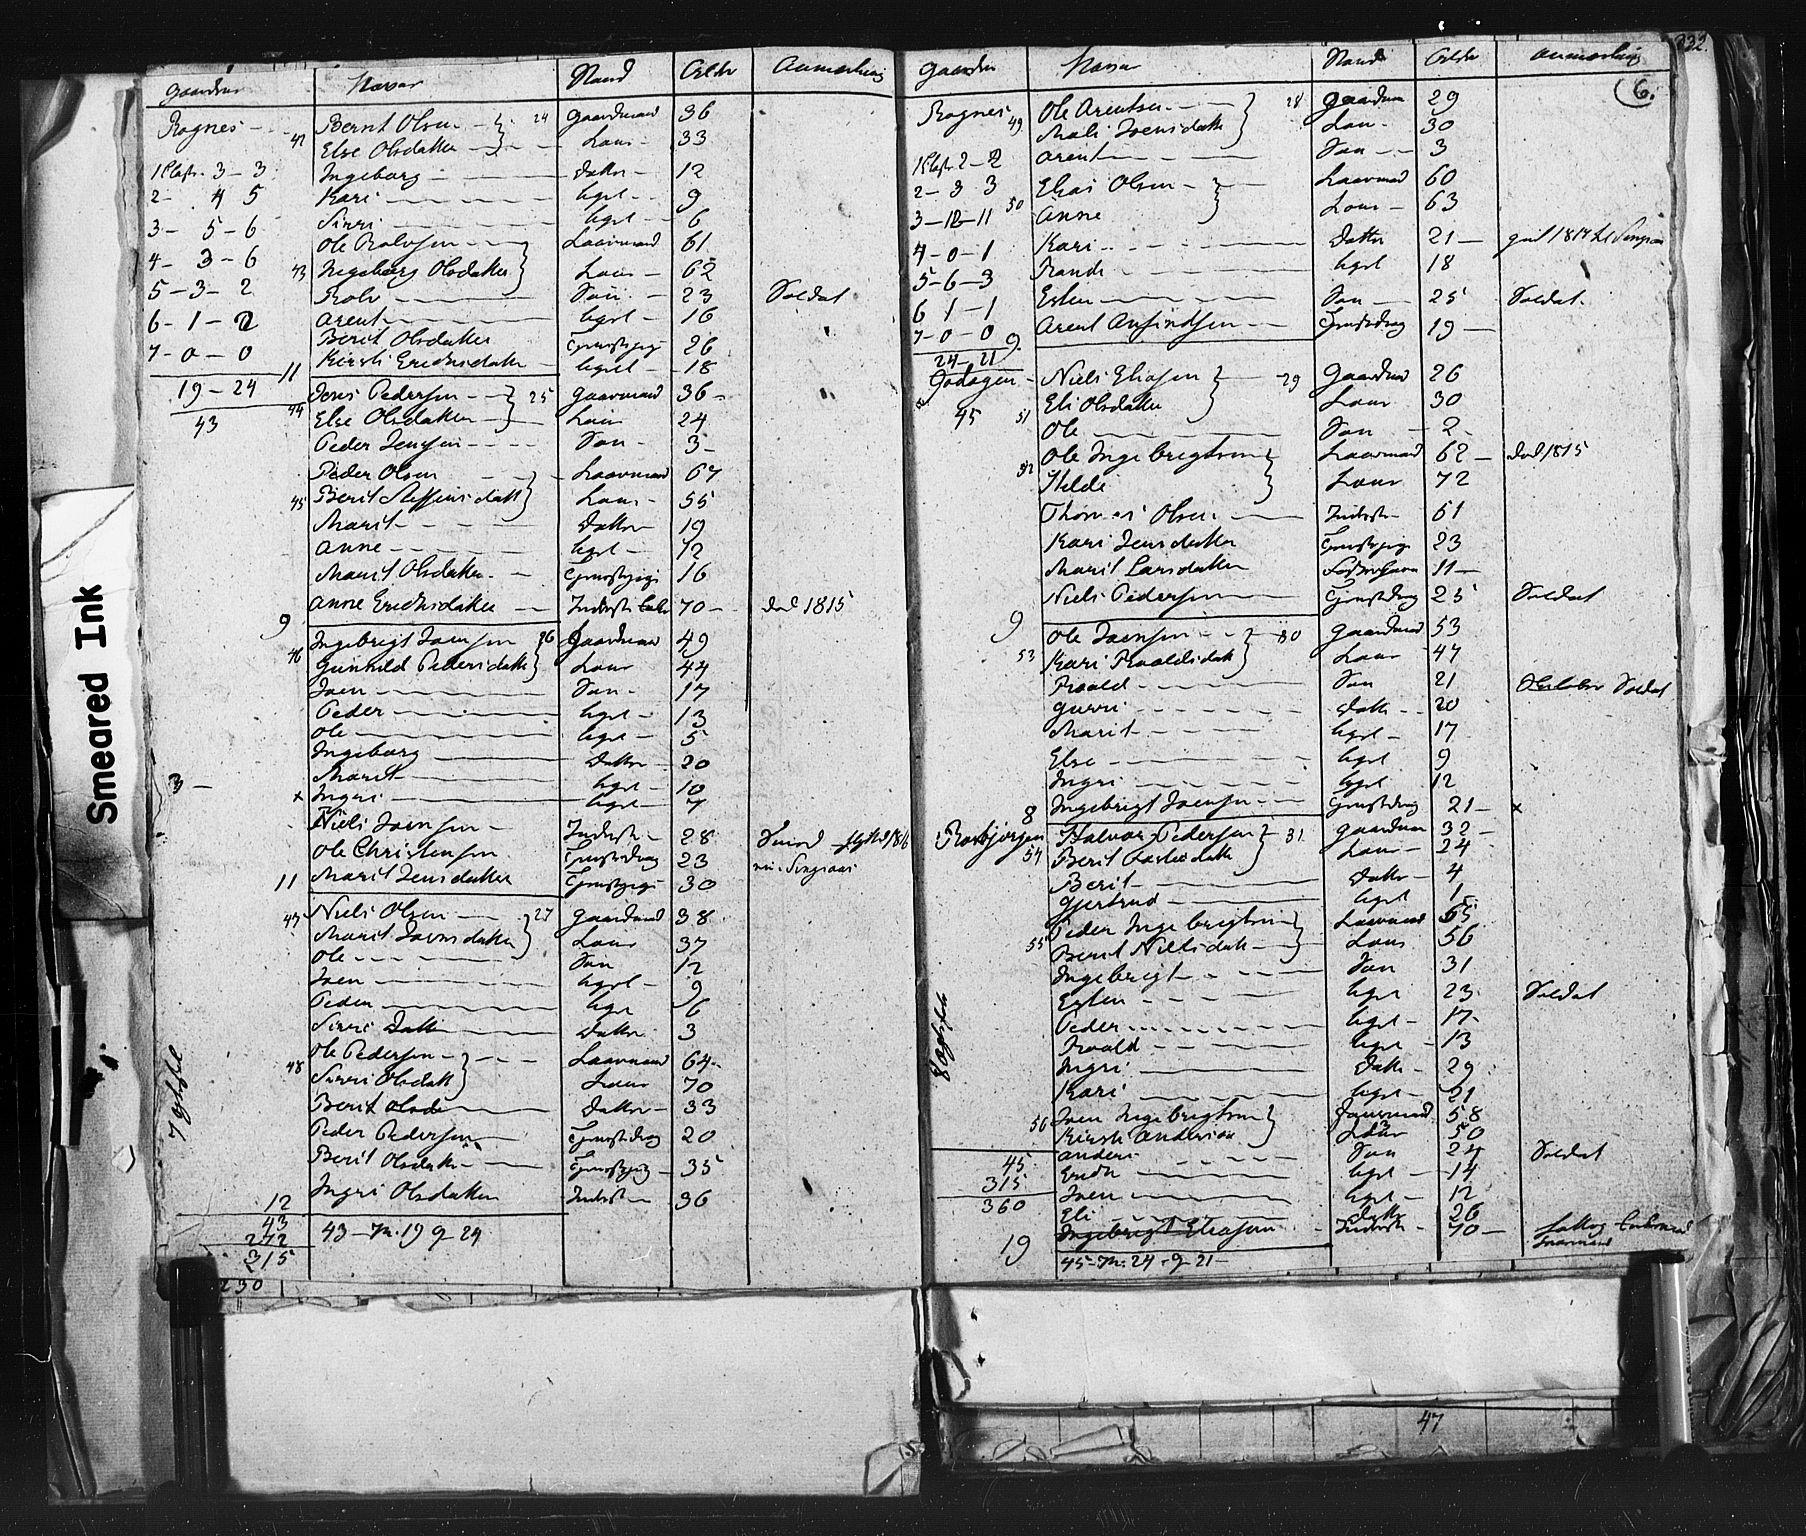 Smeared Ink
Gaardene Navne Stand Alder Anmerkning
Rognes 42 Bernt Olsen 24 Gaardmand 36
Else Olsdatter Kone 33
1 Class. 3 - 3 Ingeborg Datter 12
2 - 4 5 Kari ligel 9
3 - 5 - 6 Sirri ligel 6
Ole Rolvsen Laavmand 61
4 - 3 - 6 43 Ingeborg Olsdatter Kone 62
5 - 3 - 2 Rolv Søn 23 Soldat
6 - 1 - 2 Arent ligel 16
Berit Olsdatter Tjenestpige 26
7 - 0 - 0 11 Kirsti Erichsdatter ligel 18
19 - 24 44 Jens Pedersen 25 Gaardmand 36
43 Else Olsdatter Kone 24
Peder Jensen Søn 3
Peder Olsen Laavmand 67
45 Berit Steffensdatt Kone 55
Marit Datter 19
Anne ligel 12
Marit Olsdatter Tjenestpige 16
9 Anne Erichsdatter Inderst 70 død 1815
Ingebrigt Joensen 26 Gaardmand 49
46 Gunhild Pedersdatt Kone 44
Joen Søn 17
Peder ligel 13
Ole ligel 5
Ingeborg Datter 20
Marit ligel 10
3 - x Ingri ligel 7
Niels Joensen Inderst 28 Smed flyttet 1816
Ole Christensen Tjenestdreng 23
11 Marit Jensdatter Tjenestpige 30
47 Niels Olsen 27 Gaardmand 38
Marit Joensdatter Kone 37
Ole Søn 12
Joen ligel 9
Peder ligel 6
Sirri Datter 3
Ole Pedersen Laavmand 64
48 Sirri Olsdatt Kone 70
Berit Olsd Datter 33
Peder Pedersen Tjenestdreng 20
Berit Olsdatt Tjenestpige 35
12 Ingri Olsdatter Inderst 36
43 43 - M. 19 Q 24
272
315
230
132
6.
Gaardene Navne Stand Alder Anmerkning
Rognes 49 Ole Arentsen 28 Gaardm 29
Mali Joensdatt Kone 30
1 Class 2 - 2 Arent Søn 3
2 - 3 3 Elias Olsen Laavmand 60
3 - 12 - 11 50 Anne Kone 63
4 - 0 - 1 Kari Datter 21
5 - 6 - 3 Randi ligel 18
6 1 - 1 Esten Søn 25 Soldat
7 - 0 - 0 9 Arent Arfindsen Tjenestdreng 19
24 - 21
Niels Eliasen 29 Gaardmd 26
45 51 Eli Olsdatter Kone 30
Ole Søn 2
52 Ole Ingebrigtsen Laavmand 62 død 1815
Kone 72
Olsen Inderst 61
Kari Jensdatter Tjenestpige 23
Marit Larsdatter 11
9 Niels Pedersen Tjenestdreng 25 Soldat
Ole Joensen 30 Gaardmd 53
53 Kari Roaldsdatt Kone 47
Roald Søn 21 Soldat
Gurri Datt 20
Marit ligel 17
Else ligel 9
Ingri ligel 12
8 Ingebrigt Joensen Tjenestdreng 21 x
Rosbjørgen Halvor Pedersen 31 Gaardm 32
54 Berit Kone 24
Berit Datter 4
Gjertrud ligel 1
Peder Ingebrigtsen Laavmand 65
55 Berit Nielsdatt Kone 56
Ingebrigt Søn 31
Esten ligel 23 Soldat
Peder ligel 17
Roald ligel 13
Ingri Datt 29
Kari ligel 21
Joen Ingebrigtsen 58
56 Kirsti Kone 50
45 Anders Søn 24 Soldat
315 Erich ligel 14
360 Joen ligel 12
Eli Datt 26
19 Ingebrigt Eliasen Inderst 70
45 - M. 24 - Q 21
47